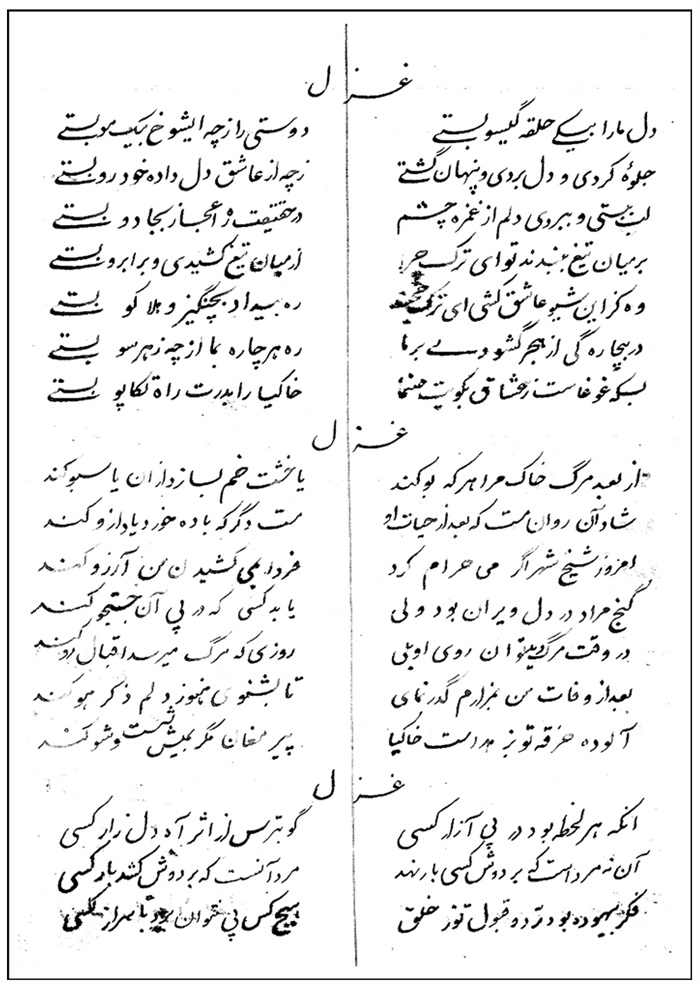 غزل
دل مارا بیکے حلقه گیسو بستے دوستی را ز چه ایشوخ بیک مو بستے
جلوهٔ کردی و دل بردی و پنهان گشتے ز چه از عاشق دل داده خود رو بستے
لب ببستی و ببردی دلم از غمزه چشم در حقیقت ره اعجاز بجادو بستے
بر میان تیغ ببندند تو ای ترک چرا از میان تیغ کشیدی و برابرو بستے
وه کز این شیوه عاشق کشی ای ترک ره بیداد بچنگیز و هلاکو بستے
در بیچاره گی از هجر گشودے بر ما ره هر چاره بما از چه ز هر سو بستے
بسکه غوغاست ز عشاق بکویت صنما خاکیا را بدرت راه تکاپو بستے
غزل
از بعد مرگ خاک مرا هر که بو کند یا خشت خم بسازد از ان یا سبو کند
شاد آن روان مست که بعد از حیات او مست دگر که باده خورد یاد از و کند
امروز شیخ شهر اگر می حرام کرد فردا بمی کشیدن من آرزو کند
گنج مراد در دل ویران بود ولی یابد کسی که در پی آن جستجو کند
در وقت مرگ دیتوان روی او روزی که مرگ میرسد اقبال رو کند
بعد از وفات من بمزارم گذر نمای تا بشنوی هنوز دلم ذکر هو کند
آلوده خرقه تو بزهد است خاکیا پیر مغان مگر بمیش شست و شو کند
غزل
انکه هر لحظه بود در پی آزار کسی گو بترس از اثر آه دل زار کسی
آن نه مرد است که بر دوش کسی بار نهد مرد آنست که بر دوش کشد بار کسی
فکر بیهوده بود رد و قبول تو ز خلق هیچ کس پی نتوان برد باسرار کسی